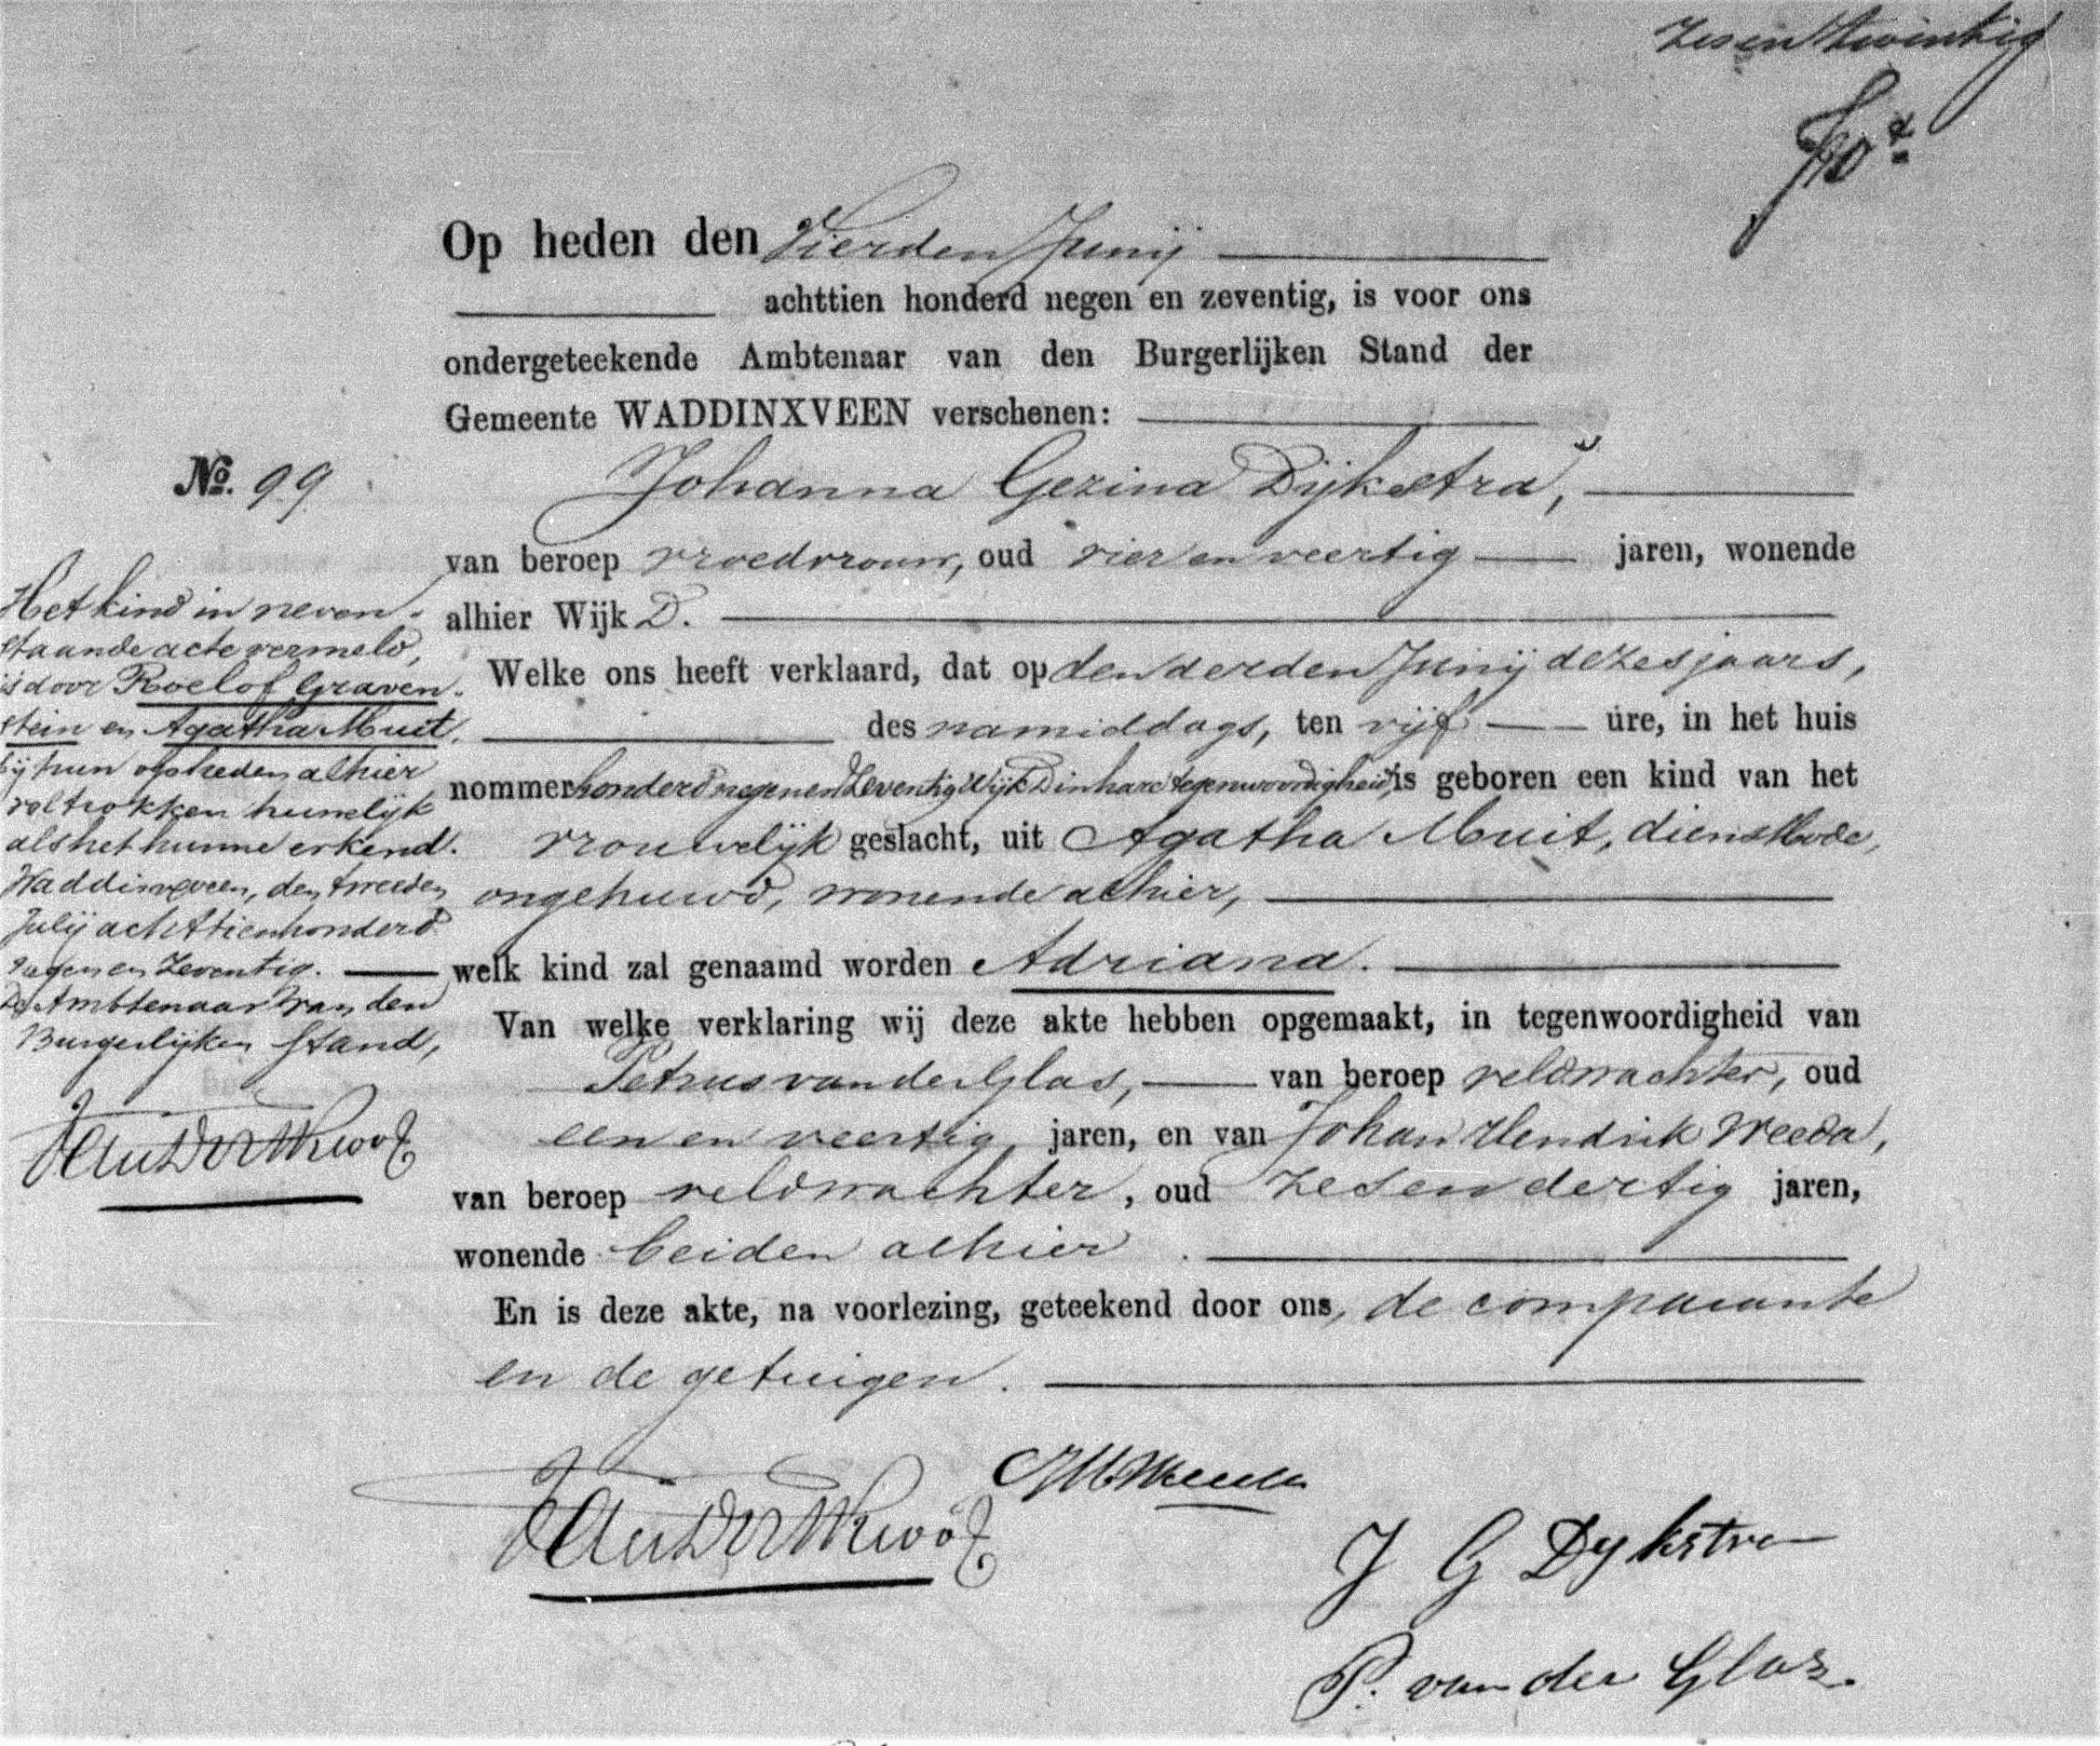 Zes en twintig
Op heden den Vierden Junij
achttien honderd negen en zeventig, is voor ons
ondergeteekende Ambtenaar van den Burgerlijken Stand der
Gemeente WADDINXVEEN verschenen:
No. 99
Johanna Gezina Dijkstra,
van beroep vroedvrouw, oud vier en veertig jaren, wonende
alhier Wijk D.
Welke ons heeft verklaard, dat op den derden Junij dezes jaars,
des namiddags, ten vijf ure, in het huis
nommer honderd negen en Zeventig Wijk D in hare tegenwoordigheid, is geboren een kind van het
vrouwelijk geslacht, uit Agatha Muit, dienstbode,
ongehuwd, wonende alhier,
welk kind zal genaamd worden Adriana.
Van welke verklaring wij deze akte hebben opgemaakt, in tegenwoordigheid van
Petrus van der Glas, van beroep veldwachter, oud
een en veertig jaren, en van Johan Hendrik Weeda,
van beroep veldwachter, oud Zes en dertig jaren,
wonende beiden alhier.
En is deze akte, na voorlezing, geteekend door ons, de comparante
en de getuigen.
Het kind in neven-
staande acte vermeld,
is door Roelof Graven-
stein en Agatha Muit,
bij hun op heden alhier
voltrokken huwelijk
als het hunne erkend.
Waddinxveen, den tweeden
Julij achttienhonderd
negen en Zeventig.
De Ambtenaar van den
Burgerlijken Stand,
JHWeeda
J G Dykstra
P. van der Glas.